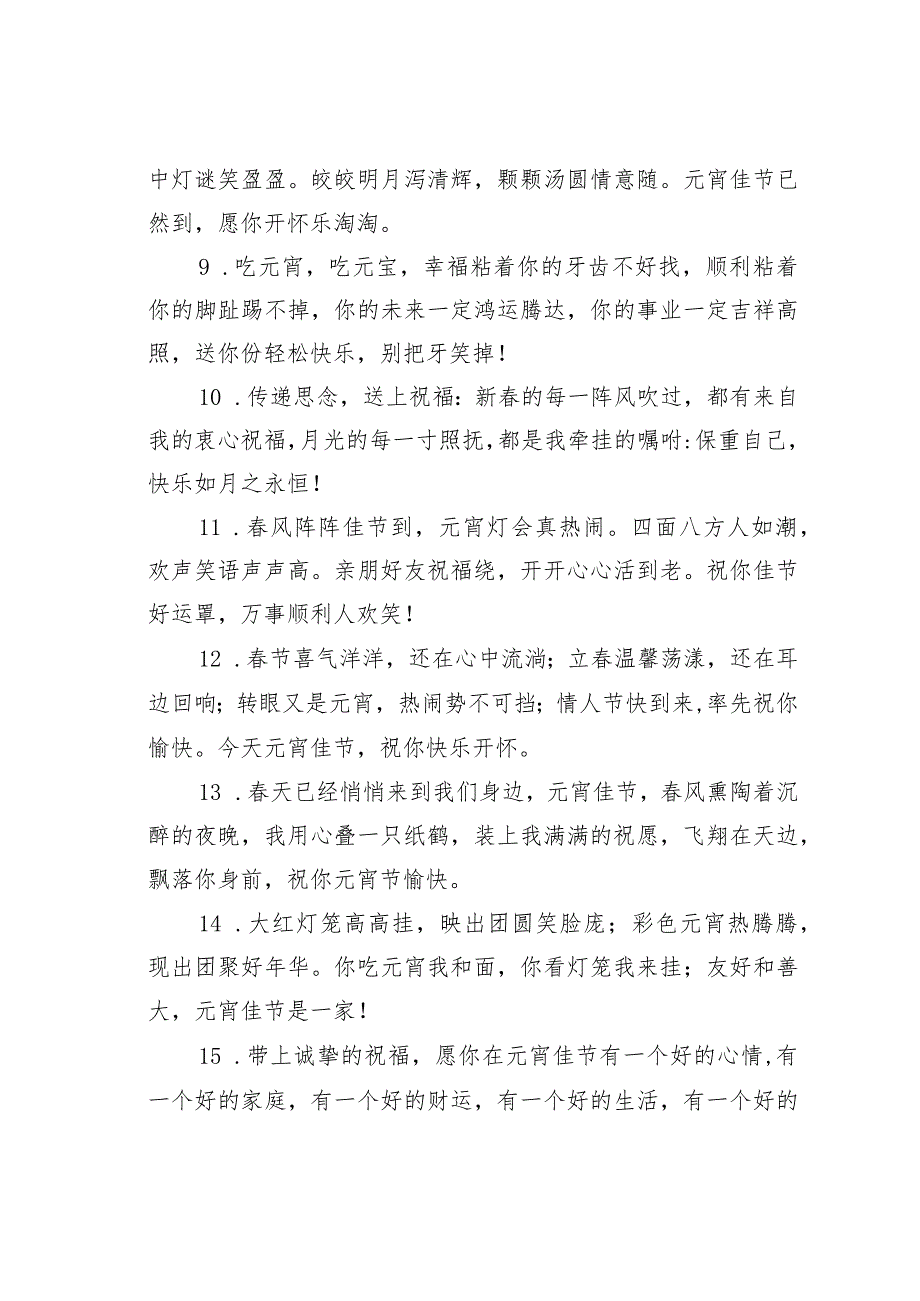 中灯谜笑盈盈。皎皎明月泻清辉，颗颗汤圆情意随。元宵佳节已
然到，愿你开怀乐淘淘。
9 .吃元宵，吃元宝，幸福粘着你的牙齿不好找，顺利粘着
你的脚趾踢不掉，你的未来一定鸿运腾达，你的事业一定吉祥高
照，送你份轻松快乐，别把牙笑掉！
10 .传递思念，送上祝福：新春的每一阵风吹过，都有来自
我的衷心祝福,月光的每一寸照抚,都是我牵挂的嘱咐:保重自己，
快乐如月之永恒！
11 .春风阵阵佳节到，元宵灯会真热闹。四面八方人如潮，
欢声笑语声声高。亲朋好友祝福绕，开开心心活到老。祝你佳节
好运罩，万事顺利人欢笑！
12 .春节喜气洋洋，还在心中流淌；立春温馨荡漾，还在耳
边回响；转眼又是元宵，热闹势不可挡；情人节快到来,率先祝你
愉快。今天元宵佳节，祝你快乐开怀。
13 .春天已经悄悄来到我们身边，元宵佳节，春风熏陶着沉
醉的夜晚，我用心叠一只纸鹤，装上我满满的祝愿，飞翔在天边，
飘落你身前，祝你元宵节愉快。
14 .大红灯笼高高挂，映出团圆笑脸庞；彩色元宵热腾腾，
现出团聚好年华。你吃元宵我和面，你看灯笼我来挂；友好和善
大，元宵佳节是一家！
15 .带上诚挚的祝福，愿你在元宵佳节有一个好的心情,有
一个好的家庭，有一个好的财运，有一个好的生活，有一个好的